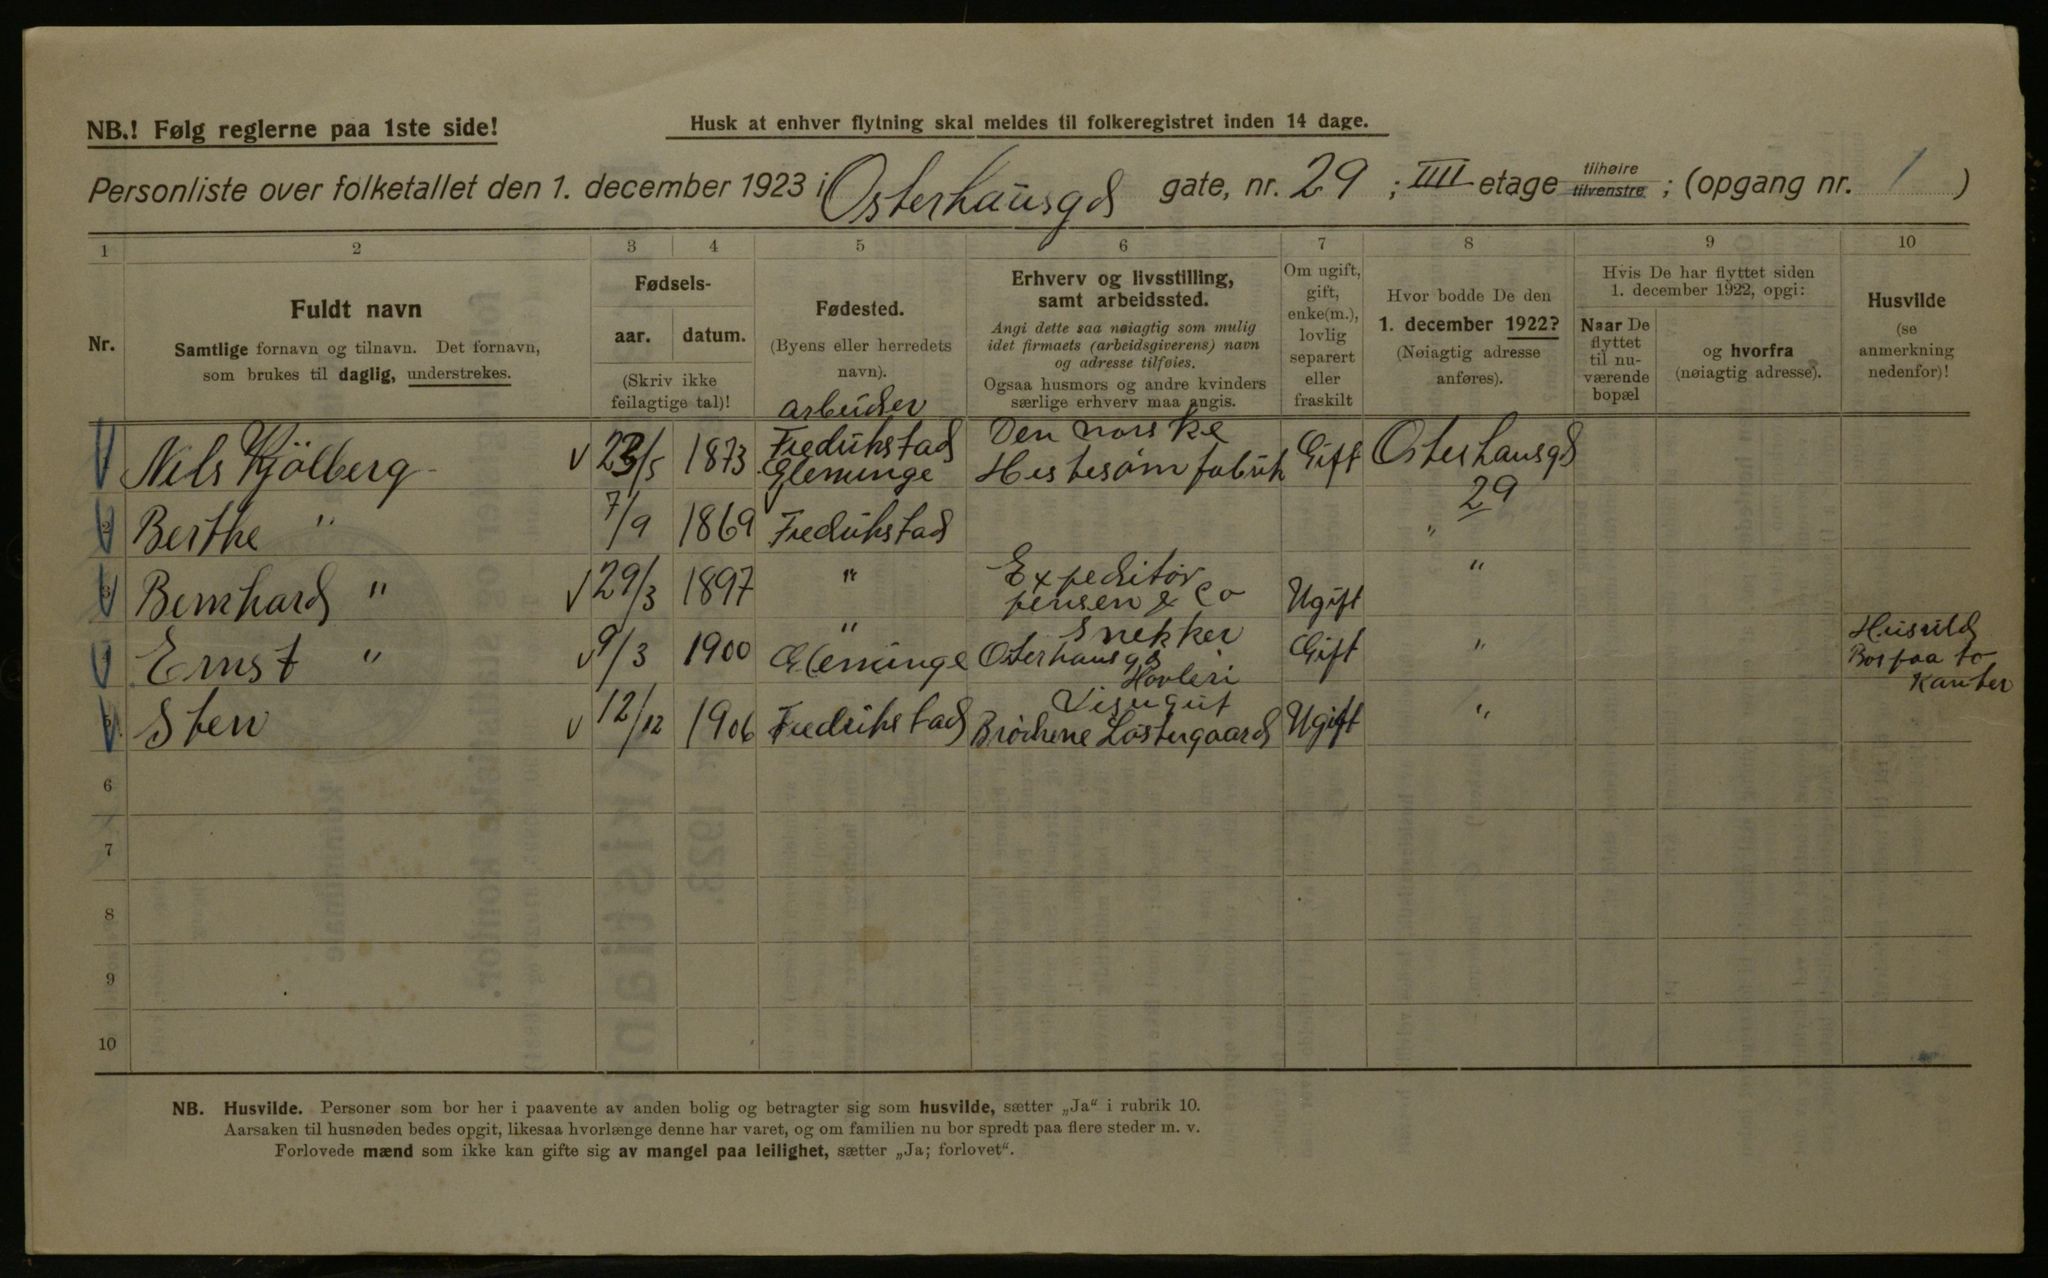 NB.! Følg reglerne paa 1ste side!
Husk at enhver flytning skal meldes til folkeregistret inden 14 dage.
Personliste over folketallet den 1. december 1923 i Osterhausgd gate, nr. 29 ; IIII etage tilhøire tilvenstre ; (opgang nr. 1 )
1 2 3 4 5 6 7 8 9 10
Nr.
Fuldt navn
Samtlige fornavn og tilnavn. Det fornavn,
som brukes til daglig, understrekes.
Fødsels-
aar. datum.
(Skriv ikke
feilagtige tal)!
Fødested.
(Byens eller herredets
navn).
Erhverv og livsstilling,
samt arbeidssted.
Angi dette saa nøiagtig som mulig
idet firmaets (arbeidsgiverens) navn
og adresse tilføies.
Ogsaa husmors og andre kvinders
særlige erhverv maa angis.
Om ugift,
gift,
enke(m.),
lovlig
separert
eller
fraskilt
Hvor bodde De den
1. december 1922?
(Nøiagtig adresse
anføres).
Hvis De har flyttet siden
1. december 1922, opgi:
Naar De
flyttet
til nu-
værende
bopæl
og hvorfra
(nøiagtig adresse).
Husvilde
(se
anmerkning
nedenfor)!
arbeider
Nils Kjölberg 23/5 1873 Fredrikstad Glemminge Den norske Hestesøm fabrik Gift Osterhausgd 29
2 Berthe " 7/9 1869 Fredrikstad "
3 Bernhard " 29/3 1897 " Expeditør Jensen & Co Ugift "
4 Ernst " 9/3 1900 " Glemminge Snekker Osterhausgd Høvleri Gift " Husvild Bor paa to Kanter
5 Sten 12/12 1906 Fredrikstad Visergut Brødrene Ugift "
6
7
8
9
10
NB. Husvilde. Personer som bor her i paavente av anden bolig og betragter sig som husvilde, sætter „Ja“ i rubrik 10.
Aarsaken til husnøden bedes opgit, likesaa hvorlænge denne har varet, og om familien nu bor spredt paa flere steder m. v.
Forlovede mænd som ikke kan gifte sig av mangel paa leilighet, sætter „Ja; forlovet“.